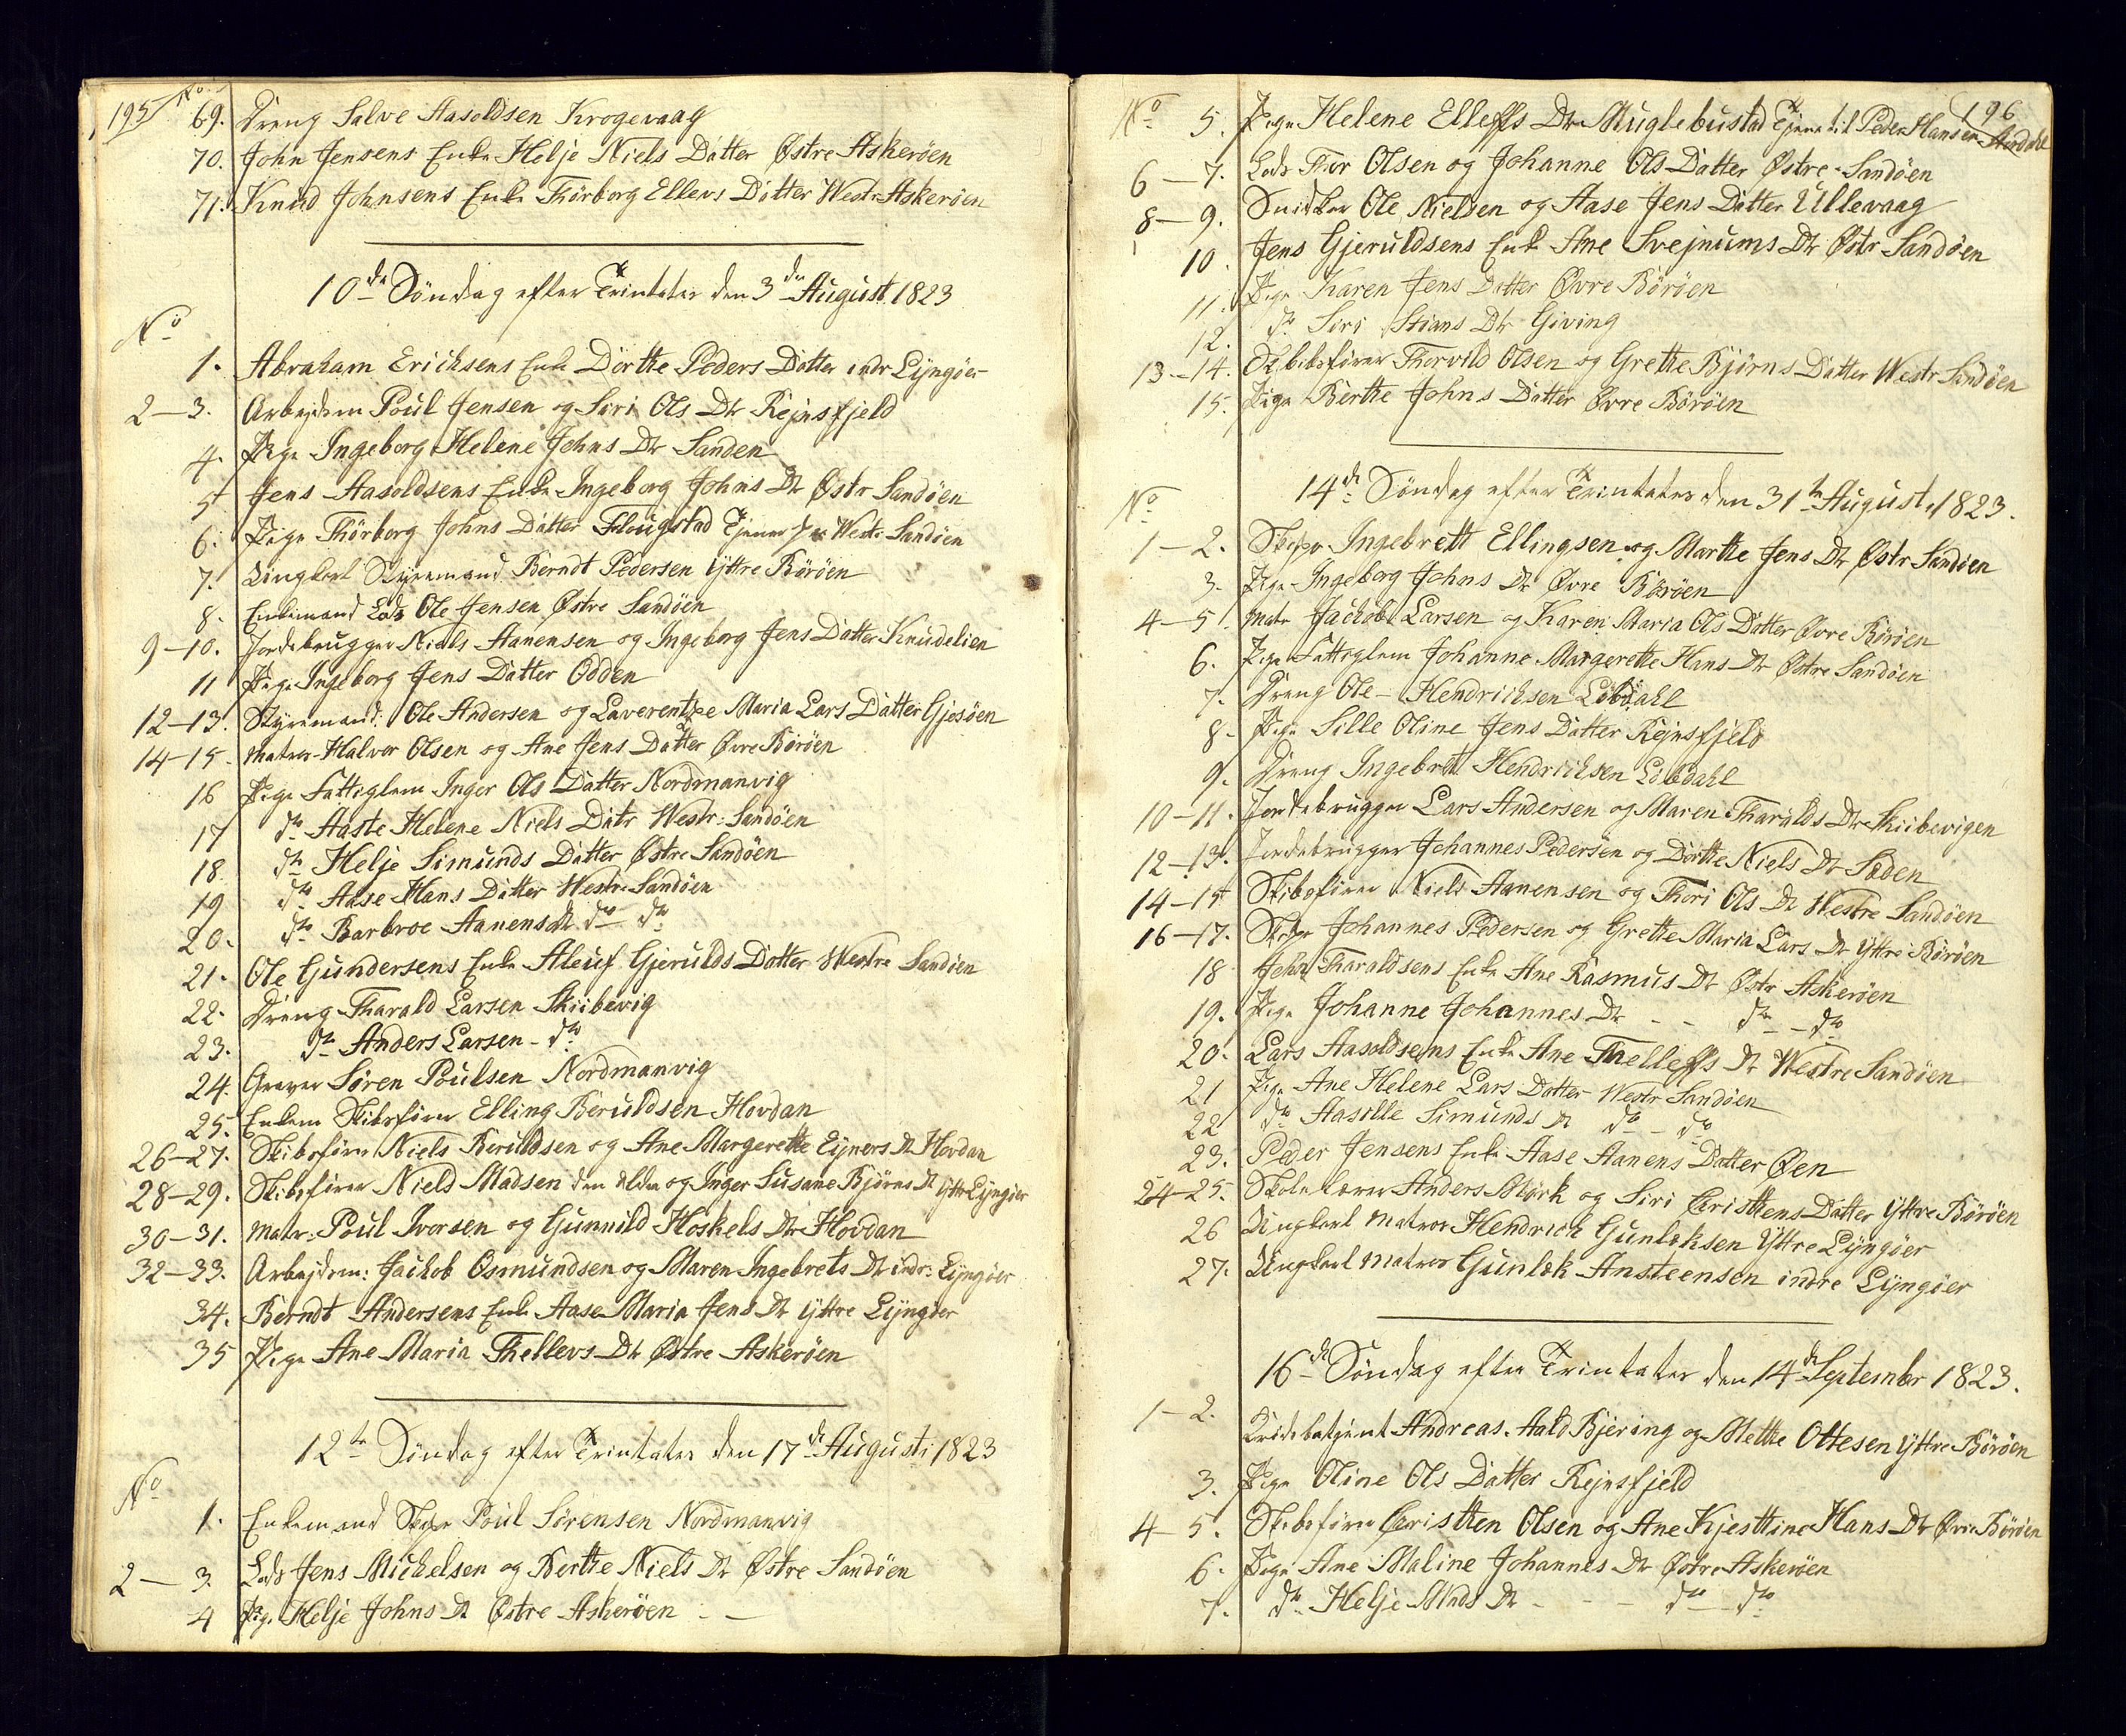 195
No
69. Dreng Salve Aasoldsen Krogevaag
70. John Jensens Enke Helje Niels Datter Østre Askerøen
71. Knud Johnsens Enke Thorborg Ellevs Datter Westr Askerøen
10de Søndag efter Trinitatis den 3de August 1823
No
1. Abraham Erichsens Enke Dorthe Peders Datter indr Lÿngøer
2–3. Arbejdsm Poul Jensen og Siri Ols Dtr Rejnsfjeld
4. Pige Ingeborg Helene Johns Dtr Sanden
5 Jens Aasoldsens Enke Ingeborg Johns Dtr Østr Sandøen
6. Pige Thorborg Johns Datter Flougstad Tjener Westr Sandøen
7. Ungkarl Styremand Berndt Pedersen Ÿttre Børøen
8. Enkemand Lods Ole Jensen Østre Sandøen
9–10. Jordebrugger Niels Aanensen og Ingeborg Jens Datter Knudelien
11 Pige Ingeborg Jens Datter Odden
12–13. Styremand: Ole Andersen og Laverentze Maria Lars Datter Gjesøen
14–15. Matros Halvor Olsen og Ane Jens Datter Øvre Børøen
16 Pige Fattiglem Inger Ols Datter Nordmanvig
17 do Aaste Helene Niels Datr Westr: Sandøen
18. do Helje Simunds Datter Østre Sandøen
19 do Aase Hans Datter Westr Sandøen
20. do Barbroe Aanens Dtr do do
21. Ole Gundersens Enke Aleuf Gjerulds Datter Westre Sandøen
22. Dreng Tharald Larsen Skiibevig
23. do Anders Larsen – do
24. Graver Søren Poulsen Nordmanvig
25. Enkem Skibsfører Elling Beruldsen Hovdan
26–27. Skibsfører Niels Beruldsen og Ane Margerethe Ejners Dtr Hovdan
28–29. Skibsfører Niels Madsen den ældre og Inger Susane Bjørns Dtr Ÿttr Lÿngøer
30–31. Matr: Poul Iversen og Gunnild Hoskels Dtr Hovdan
32–33. Arbejdsm: Jachob Osmundsen og Maren Ingebrets Dtr indr: Lÿngøer
34. Berndt Andersens Enke Aase Maria Jens Dtr Ÿttre Lÿngøer
35 Pige Ane Maria Thellevs Dtr Østre Askerøen
12te Søndag efter Trinitatis den 17de August: 1823
No
1. Enkemand Skipr Poul Sørensen Nordmanvig
2–3. Lods Jens Michelsen og Berthe Niels Dr Østre Sandøen
4 Pige Helje Johns Dr Østre Askerøen –
196
No 5. Pige Helene Elleffs Dtr Muglebustad Tjener til Peder Hansen Aasdahl
6–7. Lods Thor Olsen og Johanne Ols Datter Østre Sandøen
8–9. Snidker Ole Nielsen og Aase Jens Datter Ullevaag
10. Jens Gjeruldsens Enke Ane Svejnums Dtr Østr Sandøen
11. Pige Karen Jens Datter Øvre Børøen
12. do Siri Stians Dtr Giving
13–14. Skibsfører Thorvild Olsen og Grethe Bjørns Datter Westr Sandøen
15. Pige Berthe Johns Datter Øvre Børøen
14de Søndag efter Trinitatis den 31te August 1823.
No
1–2. Skipr Ingebrett Ellingsen og Marthe Jens Dtr Østr Sandøen
3. Pige Ingeborg Johns Dtr Øvre Børøen
4–5. Matr Jachob Larsen og Karen Maria Ols Datter Øvre Børøen
6. Pige Fattiglem Johanne Margerethe Hans Dtr Østre Sandøen
7. Dreng Ole – Hendrichsen Løbdahl
8. Pige Sille Oline Jens Datter Rejnsfjeld
9. Dreng Ingebret Hendrichsen Løbdahl
10–11. Jordebrugger Lars Andersen og Maren Tharalds Dtr Skiibevigen
12–13. Jordebrugger Johannes Pedersen og Dorthe Niels Dr Søden
14–15 Skibsfører Niels Aanensen og Thori Ols Dr Westre Sandøen
16–17. Skipr Johannes Pedersen og Grethe Maria Lars Dr Ÿttre Børøen
18 John Tharaldsens Enke Ane Rasmus Dr Østr Askerøen
19. Pige Johanne Johannes Dr – – do – do
20. Lars Aasoldsens Enke Ane Thelleffs Dr Westre Sandøen
21 Pige Ane Helene Lars Datter Westr Sandøen
22 do Aasille Simunds Dr do – do
23. Peder Jensens Enke Aase Aanens Datter Øen
24–25. Skolelærer Anders Mørk og Siri Christhens Datter Ÿttre Børøen
26 Ungkarl Matros Hendrich Gunlæksen Ÿttre Lÿngøer
27. Ungkarl Matros Gunlæk Ansteensen indre Lÿngøer
16de Søndag efter Trinitatis den 14de September 1823.
1–2. Andreas Aald Bjering og Mette Ottesen Ÿttre Børøen
3. Pige Oline Ols Datter Rejnsfjeld
4–5. Skibsfører Christhen Olsen og Ane Kjesttine Hans Dtr Øvre Børøen
6. Pige Ane Maline Johannes Dr Østre Askerøen
7. do Helje Mads Dr – – – do do